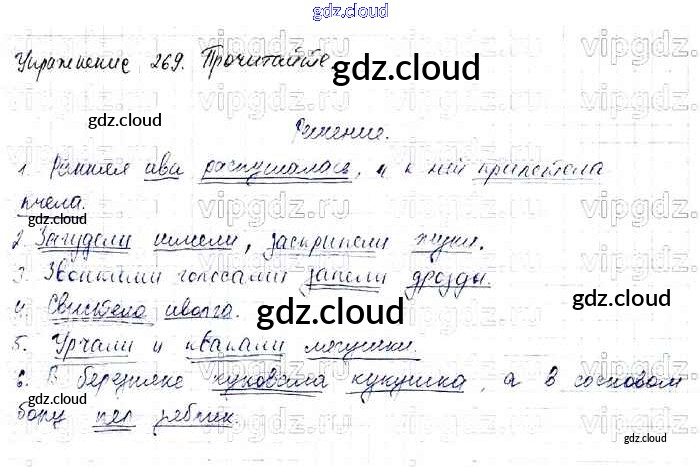 gdz.cloud
Упражнение 269. Прочитайте.
gdz.cloud
gdz.cloud
Решение.
1. Ранняя ива распушалась, и к ней прилетела
пчела.
gdz.cloud
gdz.cloud
2. Загудели шмели, заскрипели жуки.
3. Звонкими голосами запели дрозды.
gdz.cloud
4. Свистела иволга.
gdz.cloud
gdz.cloud
5. Урчали и квакали лягушки.
6. В березняке куковала кукушка, а в сосновом
gdz.cloud
бору пел рябчик.
gdz.cloud
gdz.cloud